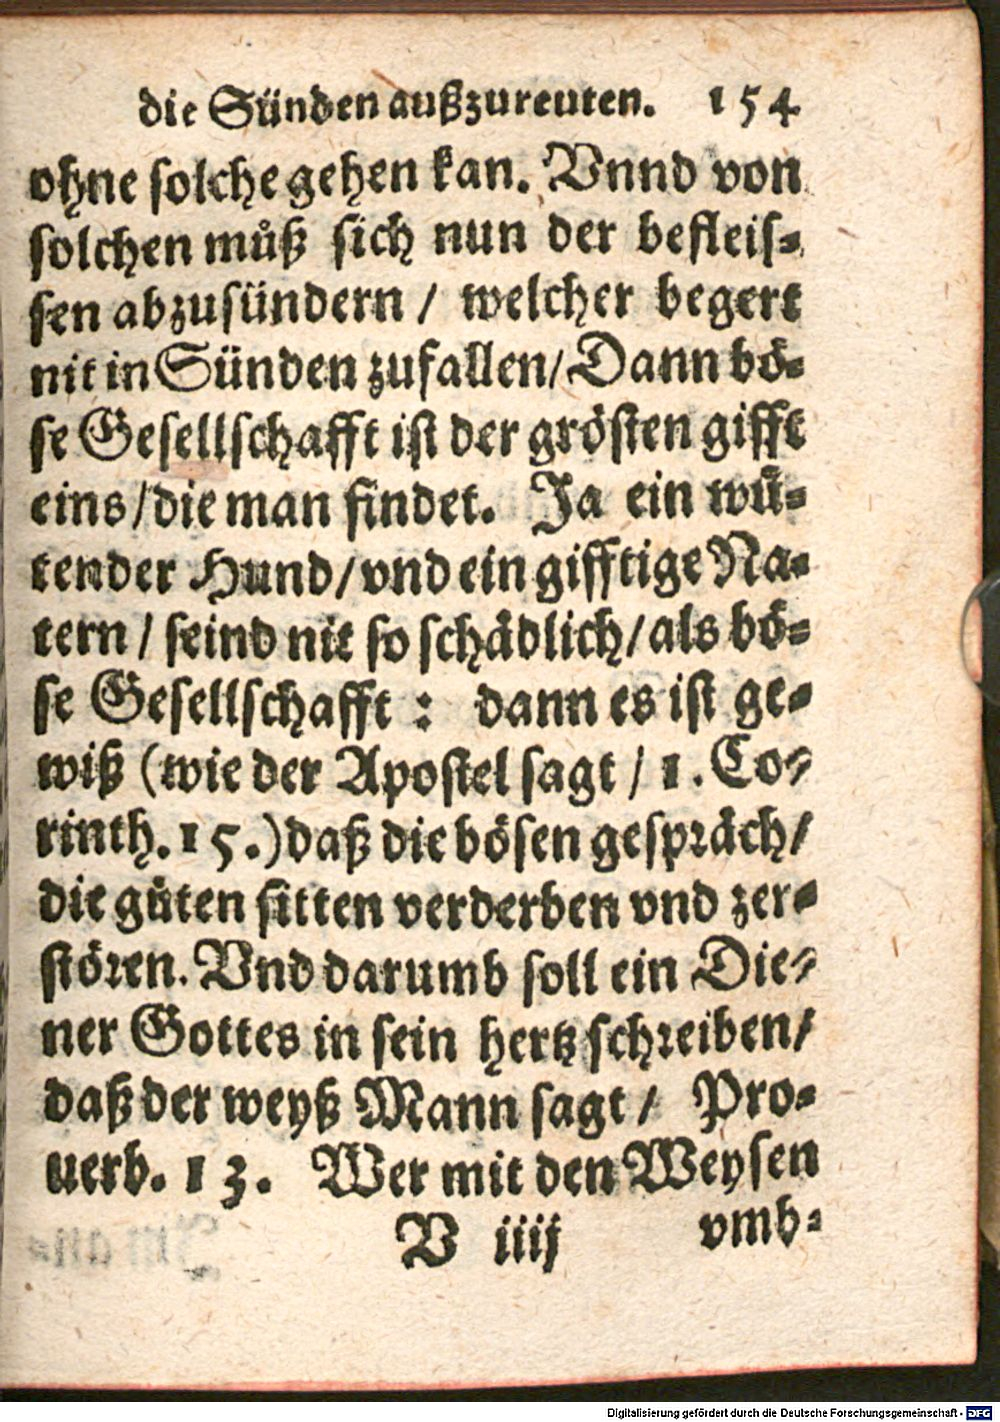 die Sünden außzureuten. 154
ohne solche gehen kan. Vnnd von
solchen můß sich nun der befleis-
sen abzusündern / welcher begert
nit in Sünden zufallen/ Dann bö-
se Gesellschafft ist der grösten gifft
eins/ die man findet. Ja ein wü-
tender Hund/ vnd ein gifftige Na-
tern / seind nit so schädlich/ als bö-
se Gesellschafft : dann es ist ge-
wiß (wie der Apostel sagt / 1. Co-
rinth. 15.) daß die bösen gespräch/
die gůten sitten verderben vnd zer-
stören. Vnd darumb soll ein Die-
ner Gottes in sein hertz schreiben/
daß der weyß Mann sagt / Pro-
uerb. 13. Wer mit den Weysen
V iiij vmb-
Digitalisierung gefördert durch die Deutsche Forschungsgemeinschaft - DFG